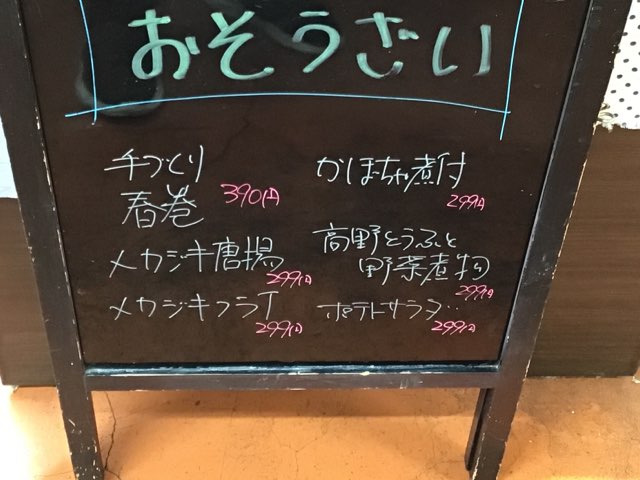 おそうざい
手づくり
春巻 390円
メカジキ唐揚
299円
メカジキフライ
299円
かぼちゃ煮付
299円
高野とうふと
野菜煮物
299円
ポテトサラダ
299円